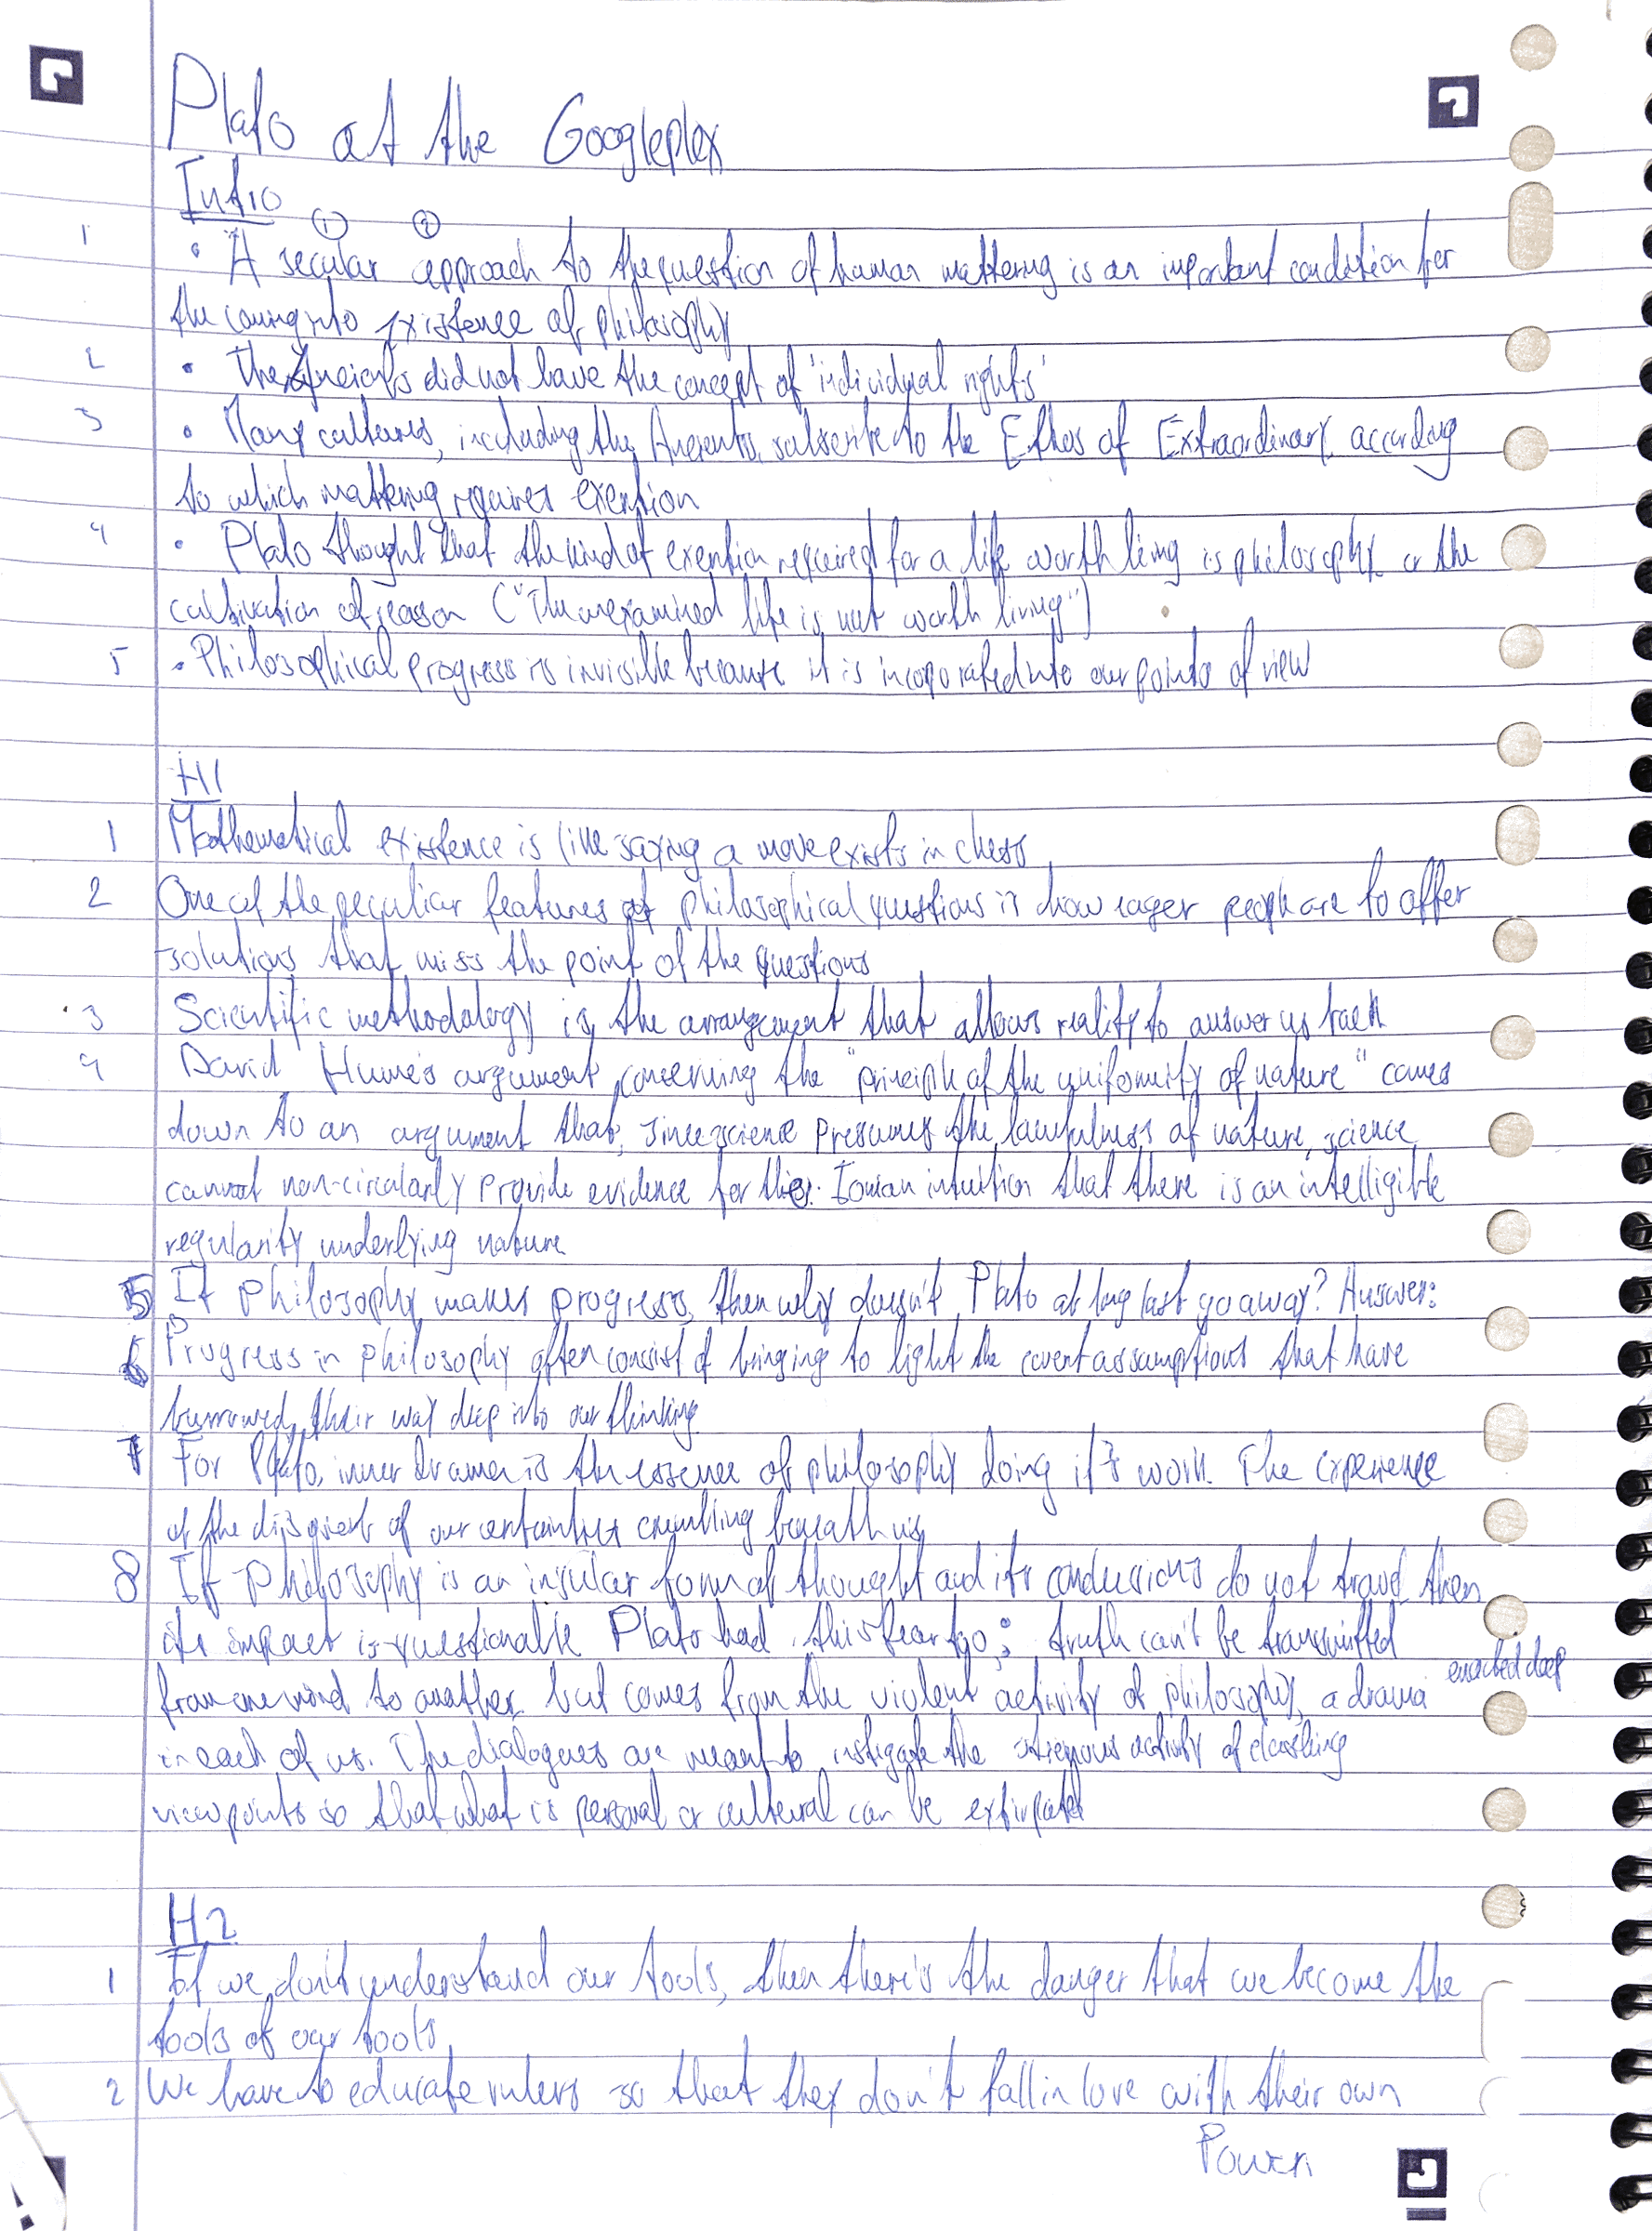 Plato at the Googleplex
Intro
① ②
1 • A secular approach to the question of human mattering is an important condition for
the coming into existence of philosophy
2 • The Ancients did not have the concept of 'individual rights'
3 • Many cultures, including the Ancients, subscribe to the Ethos of Extraordinary, according
to which mattering requires exertion
4 • Plato thought that the kind of exertion required for a life worth living is philosophy or the
cultivation of reason ("The unexamined life is not worth living")
5 • Philosophical progress is invisible because it is incorporated into our points of view
H1
1 Mathematical existence is like saying a move exists in chess
2 One of the peculiar features of philosophical questions is how eager people are to offer
solutions that miss the point of the questions
3 Scientific methodology is the arrangement that allows reality to answer us back
4 David Hume's argument concerning the "principle of the uniformity of nature" comes
down to an argument that, since science presumes the lawfulness of nature, science
cannot non-circularly provide evidence for the Ionian intuition that there is an intelligible
regularity underlying nature
5 If philosophy makes progress, then why doesn't Plato at long last go away? Answer:
6 Progress in philosophy often consist of bringing to light the covert assumptions that have
burrowed their way deep into our thinking
7 For Plato, inner drama is the essence of philosophy doing it's work. The experience
of the disquiet of our certainties crumbling beneath us
8 If philosophy is an insular form of thought and its conclusions do not travel then
its impact is questionable Plato had this fear too; truth can't be transmitted
from one mind to another but comes from the violent activity of philosophy, a drama enacted deep
in each of us. The dialogues are meant to instigate the strenuous activity of clashing
viewpoints so that what is personal or cultural can be extirpated
H2
1 If we don't understand our tools, then there's the danger that we become the
tools of our tools
2 We have to educate rulers so that they don't fall in love with their own
Power